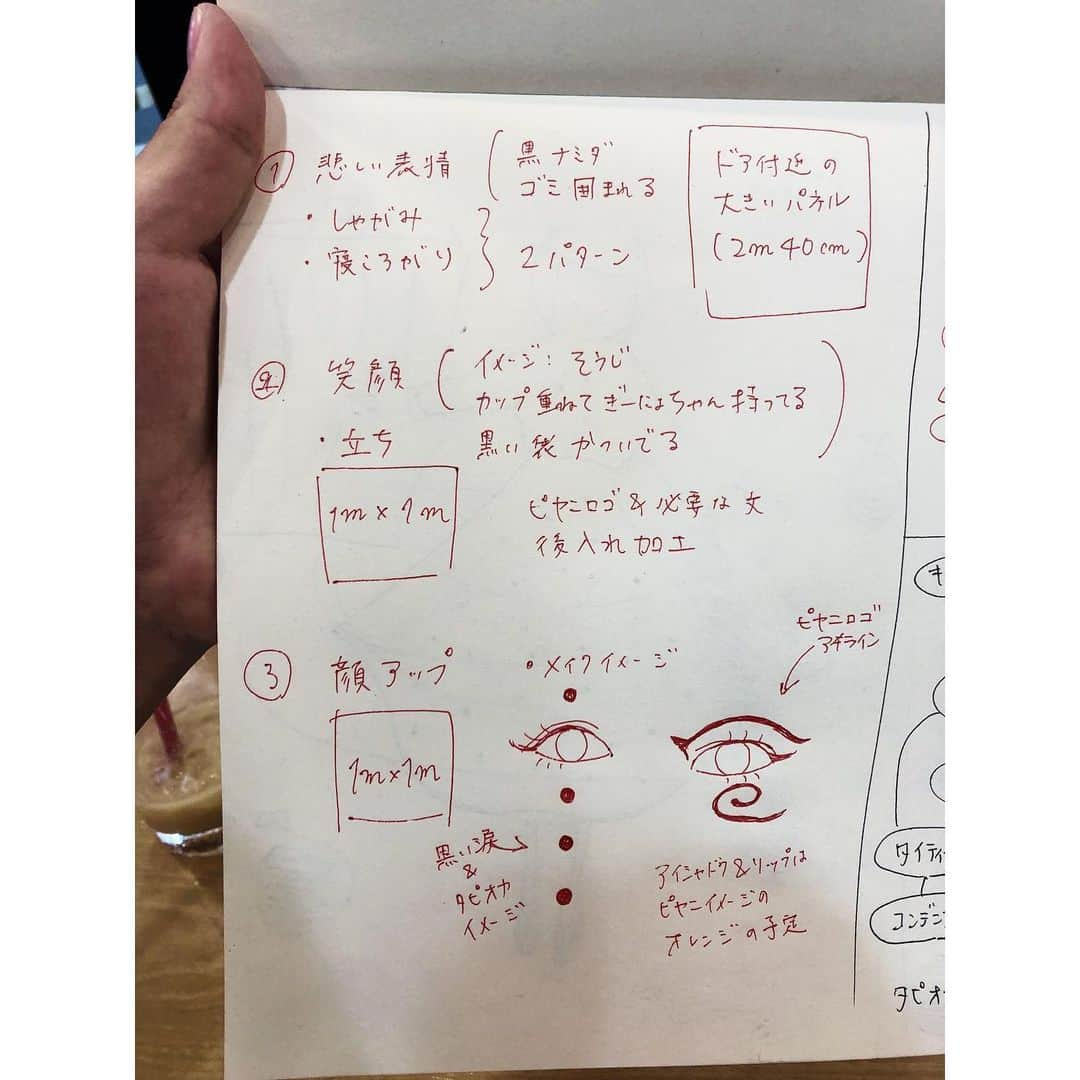 ① 悲しい表情
(黒ナミダ
ゴミ囲まれる
・しゃがみ
・寝ころがり
} 2パターン
ドア付近の
大きいパネル
(2m40cm)
② 笑顔
(イメージ:そうじ
カップ重ねてぎーにょちゃん持ってる
黒い袋かついでる)
・立ち
1m×1m
ピヤニロゴ&必要な文
後入れ加工
③ 顔アップ
1m×1m
・メイクイメージ
ピヤニロゴ
アイライン
黒い涙
&
タピオカ
イメージ
アイシャドウ&リップは
ピヤニイメージの
オレンジの予定
キ
タイティ
コンデン
タピオ